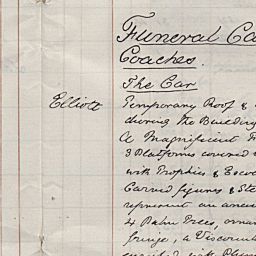 Funeral Ca
Coaches.
The Car
Elliott
Temporary Roof &
during the Building
A Magnificent F
3 Platforms covered
with Trophies & Escut
Carved figures & Ste
represent an
4 Palm Trees, orna
fringe, a Viscount